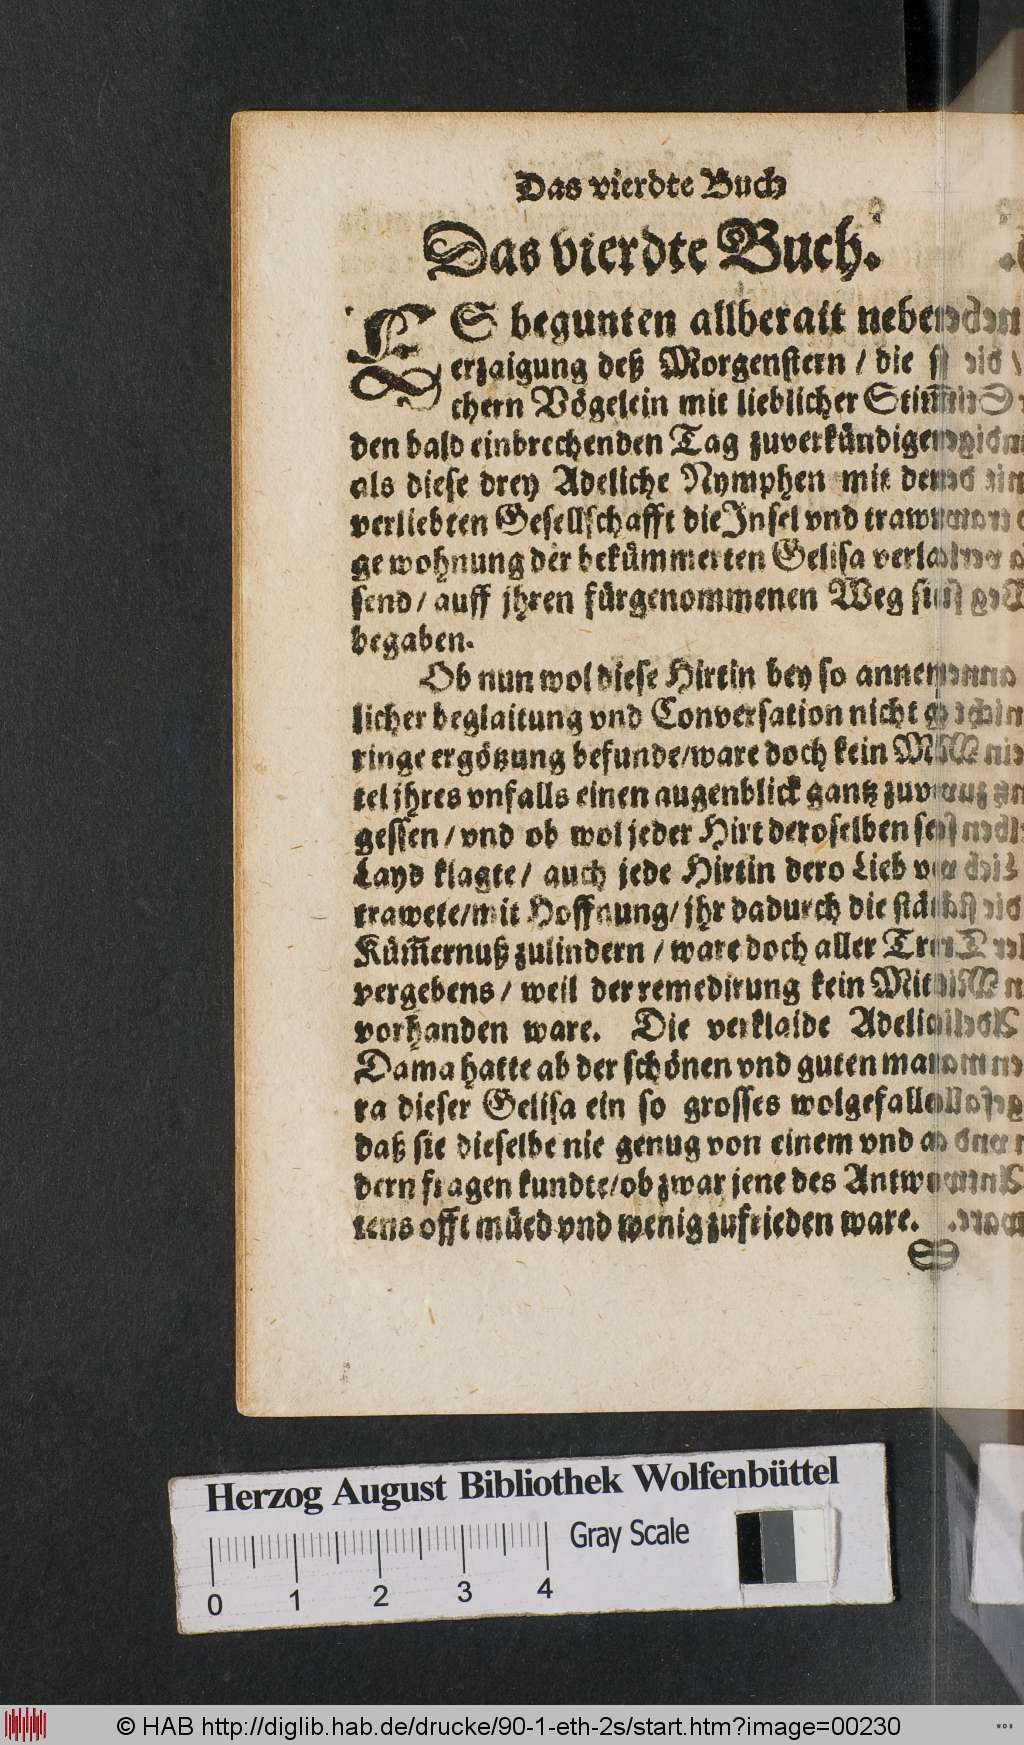 Das vierdte Buch
Das vierdte Buch.
ES begunten allberait neben
erzaigung deß Morgenstern / die
chern Vögelein mit lieblicher Stim̃
den bald einbrechenden Tag zuverkündigen
als diese drey Adeliche Nymphen mit der
verliebten Gesellschafft die Insel vnd trawri
ge wohnung der bekümmerten Gelisa verlas
send / auff jhren fürgenommenen Weg sich
begaben.
Ob nun wol diese Hirtin bey so annem
licher beglaitung vnd Conversation nicht ge
ringe ergötzung befunde/ware doch kein Mit
tel jhres vnfalls einen augenblick gantz zuver
gessen / vnd ob wol jeder Hirt deroselben sein
Layd klagte / auch jede Hirtin dero Lieb ver
trawete/mit Hoffnung/ jhr dadurch die
Küm̃ernuß zulindern / ware doch aller Trost
vergebens / weil der remedirung kein Mittel
vorhanden ware. Die verklaide Adeliche
Dama hatte ab der schönen vnd guten manie
ra dieser Gelisa ein so grosses wolgefallen
daß sie dieselbe nie genug von einem vnd an
dern fragen kundte/ob zwar jene des Antwor
tens offt müed vnd wenig zufrieden ware.
Herzog August Bibliothek Wolfenbüttel
Gray Scale
0 1 2 3 4
© HAB http://diglib.hab.de/drucke/90-1-eth-2s/start.htm?image=00230